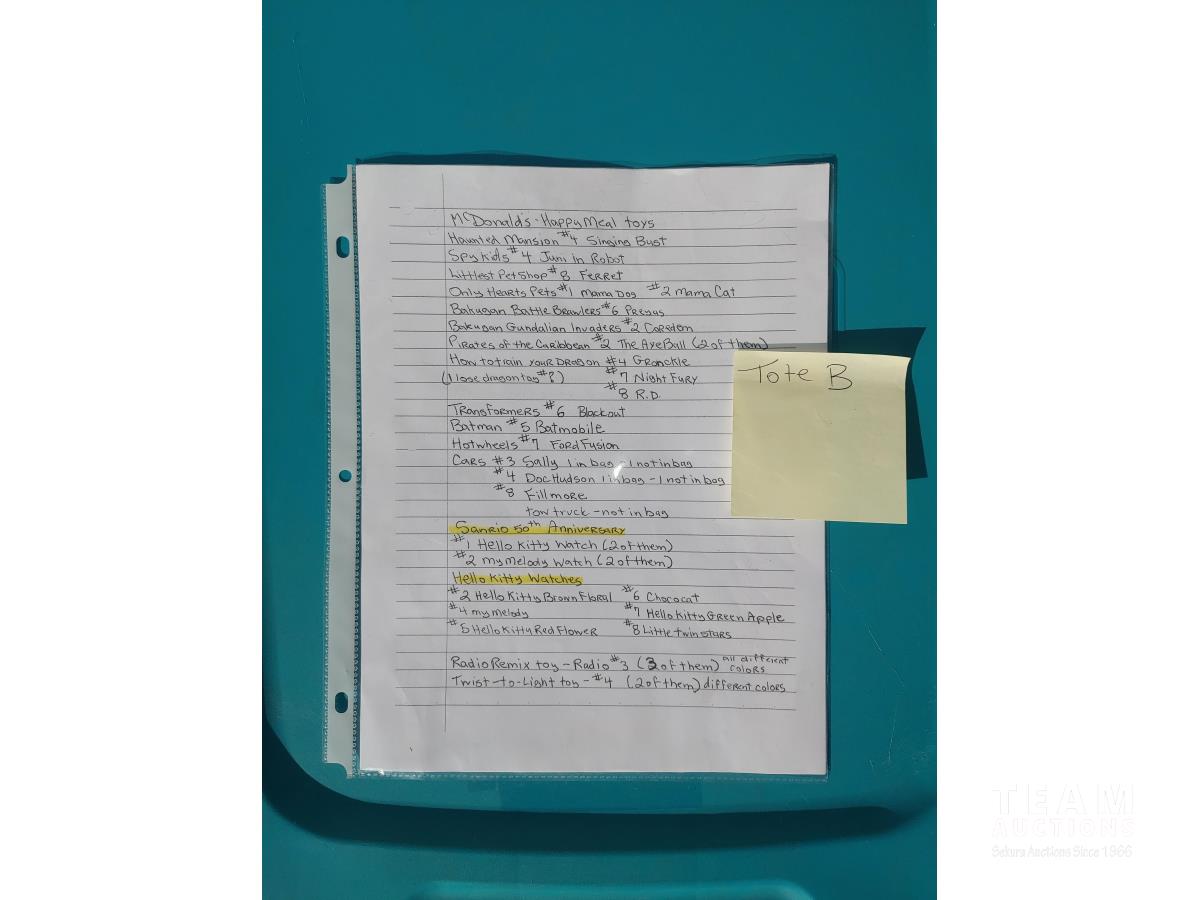 McDonald's - Happy Meal toys
Haunted Mansion #4 Singing Bust
Spy kids #4 Juni in Robot
Littlest Pet Shop #8 Ferret
Only Hearts Pets #1 Mama Dog #2 Mama Cat
Bakugan Battle Brawlers #6 Preyas
Bakugan Gundalian Invaders #2 Coredem
Pirates of the Caribbean #2 The Aye Ball (2 of them)
How to train your Dragon #4 Gronckle
(1 lose dragon toy #?) #7 Night Fury
#8 R.D.
Transformers #6 Blackout
Batman #5 Batmobile
Hotwheels #7 Ford Fusion
Cars #3 Sally 1 in bag - 1 not in bag
#4 Doc Hudson 1 in bag - 1 not in bag
#8 Fillmore
tow truck - not in bag
Sanrio 50th Anniversary
#1 Hello Kitty Watch (2 of them)
#2 my melody watch (2 of them)
Hello Kitty Watches
#2 Hello Kitty Brown Floral #6 Chococat
#4 my melody #7 Hello Kitty Green Apple
#5 Hello Kitty Red Flower #8 Little twin stars
Radio Remix toy - Radio #3 (3 of them) all different colors
Twist-to-Light toy - #4 (2 of them) different colors
Tote B
TEAM
AUCTIONS
Sekura Auctions Since 1966